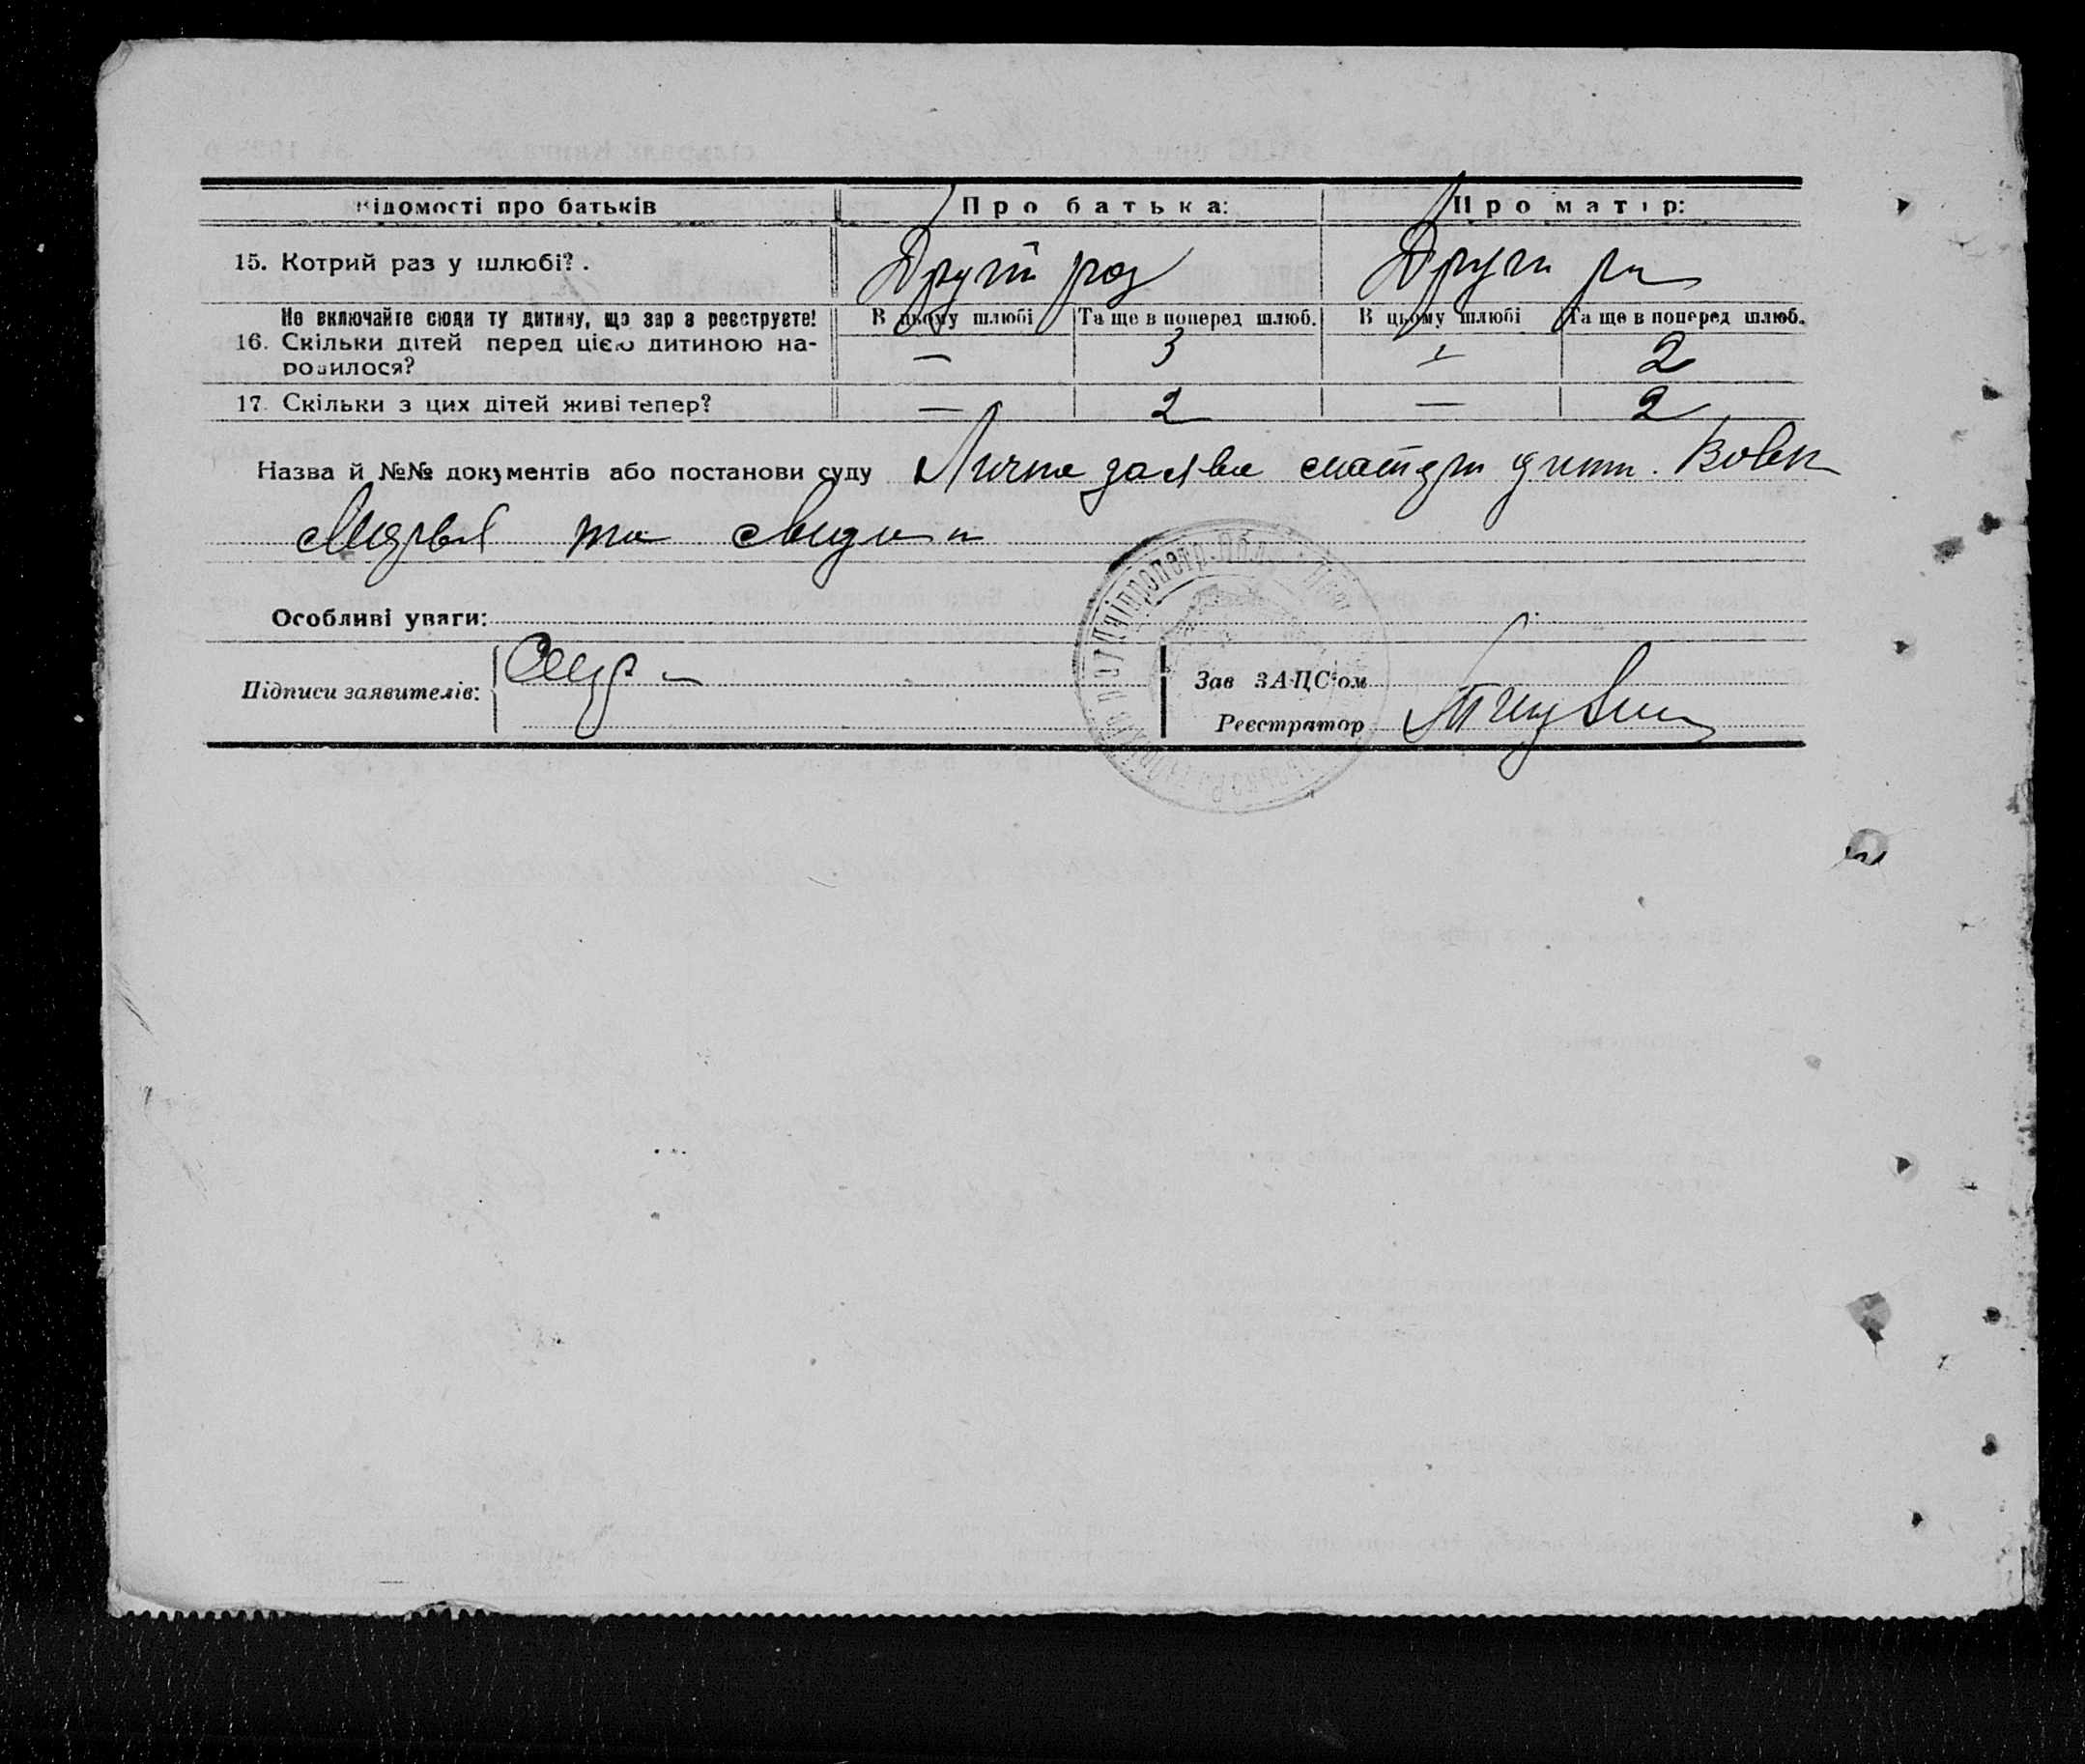 Відомості про батьків Про батька: Про матір:
15. Котрий раз у шлюбі? . Другий раз Други ра
Не включайте сюди ту дитину, що зар з реєструєте! В цьому шлюбі Та ще в поперед шлюб. В цьому шлюбі Та ще в поперед шлюб.
16. Скільки дітей перед цією дитиною на-
родилося? — 3 — 2
17. Скільки з цих дітей живі тепер? — 2 — 2
Назва й №№ документів або постанови суду Лична заява матери дити. Вовк
та
Особливі уваги:
Підписи заявителів:
Зав ЗАЦС'ом
Реєстратор
Дніпропетр. Обл.